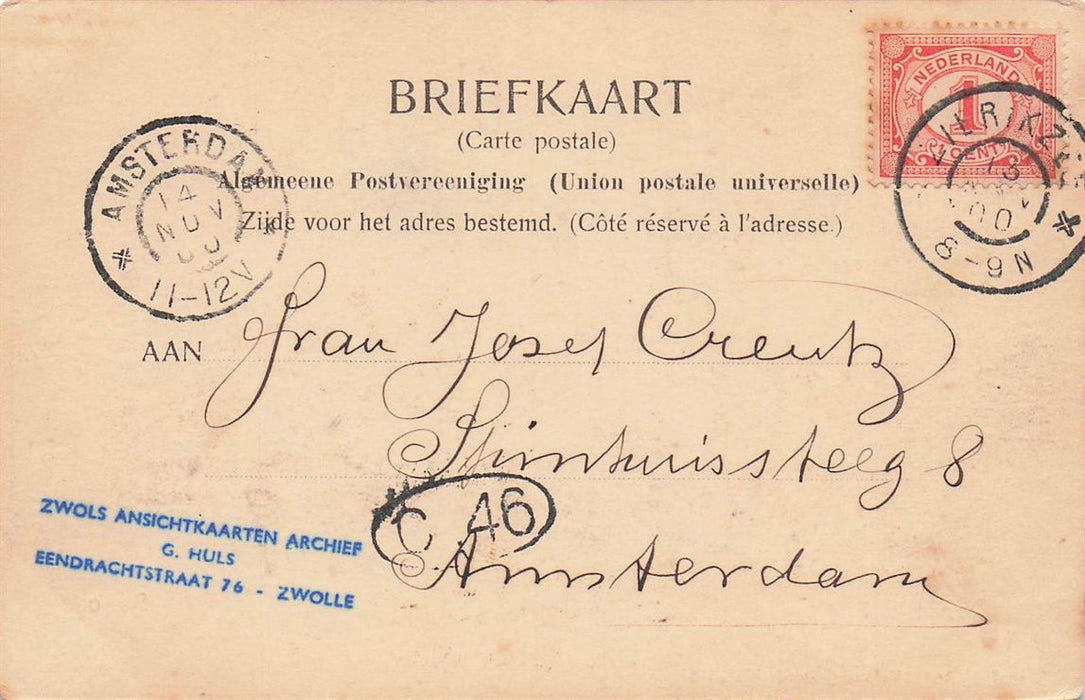 BRIEFKAART
(Carte postale)
Algemeene Postvereeniging (Union postale universelle)
Zijde voor het adres bestemd. (Côté réservé à l'adresse.)
NEDERLAND
1
CENT
ZIERIKZEE
13
00
8-9N
AMSTERDAM
14
NOV
00
11-12V
AAN
Frau Josef Creutz
Spinhuissteeg 8
Amsterdam
C 46
ZWOLS ANSICHTKAARTEN ARCHIEF
G. HULS
EENDRACHTSTRAAT 76 - ZWOLLE